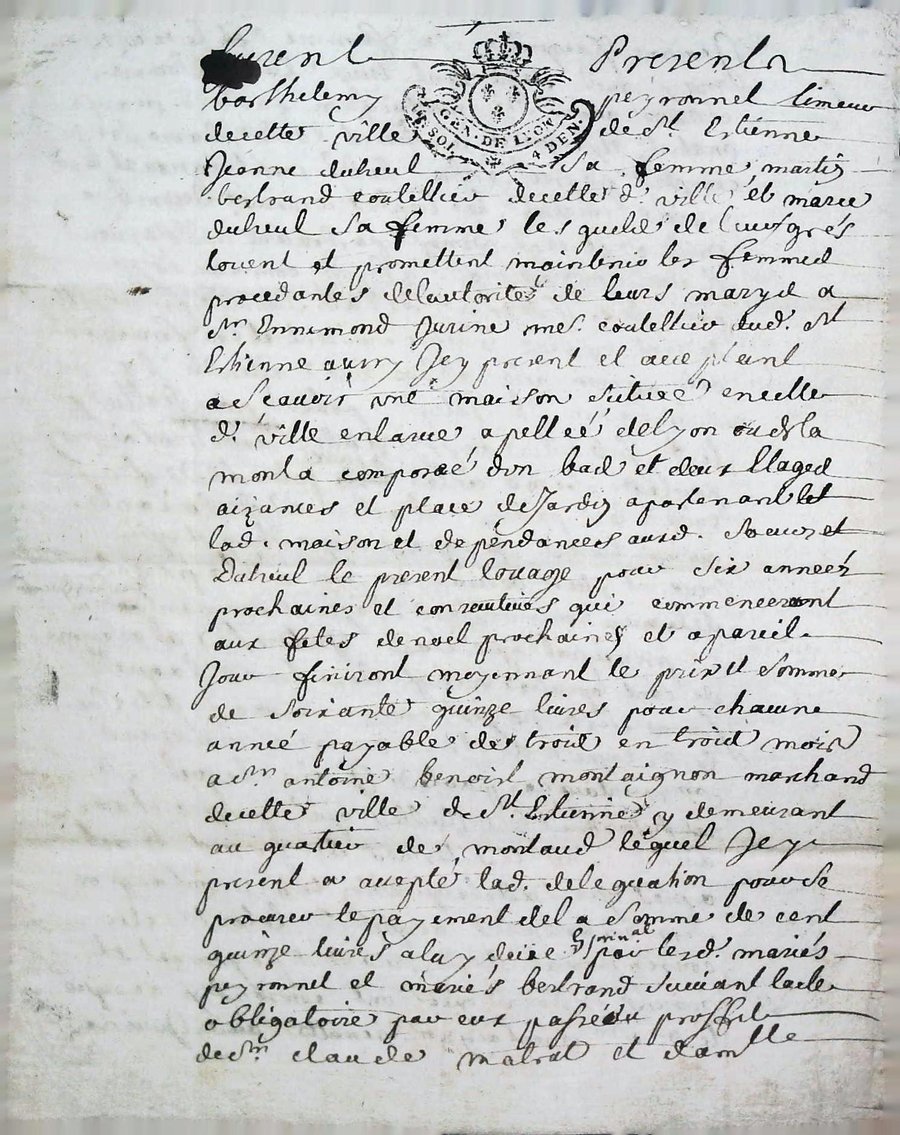 furent Presents
GEN. DE LYON
SOL. 4 DEN.
barthelemy peyronnel limeur
decette ville de St. Estienne
Jeanne duheul sa femme, martin
bertrand coutellier decette d. ville et marie
duheul sa femme lesquels de leurs grés
louent et promettent maintenir les femmes
procedantes delautorité de leurs marys a
sr. Ennimond Jurine me. coutellier aud. St
Estienne aussy Jcy present et acceptant
ascavoir une maison scituée encette
d. ville enlarue apellée delyon ou dela
monta composée dun bas et deux Etages
aizances et place de Jardin apartenant et
lad. maison et dependances aud. soeurs
Duheul le present louage pour six années
prochaines et consecutives qui commenceront
aux fêtes denoel prochaines et apareil
Jour finiront moyennant le prix et somme
de soixante quinze livres pour chacune
année payable de trois en trois mois
a sr. antoine benoist montaignon marchand
decette ville de St. Estienne y demeurant
au quartier de montaud lequel Jcy
present a accepté lad. deleguation pour se
procurer le payement dela somme de cent
quinze livres aluy deüe en prinal par lesd. mariés
peyronnel et mariés bertrand suivant lacte
obligatoire par eux passé au proffit
de sr. claude malrat et damlle